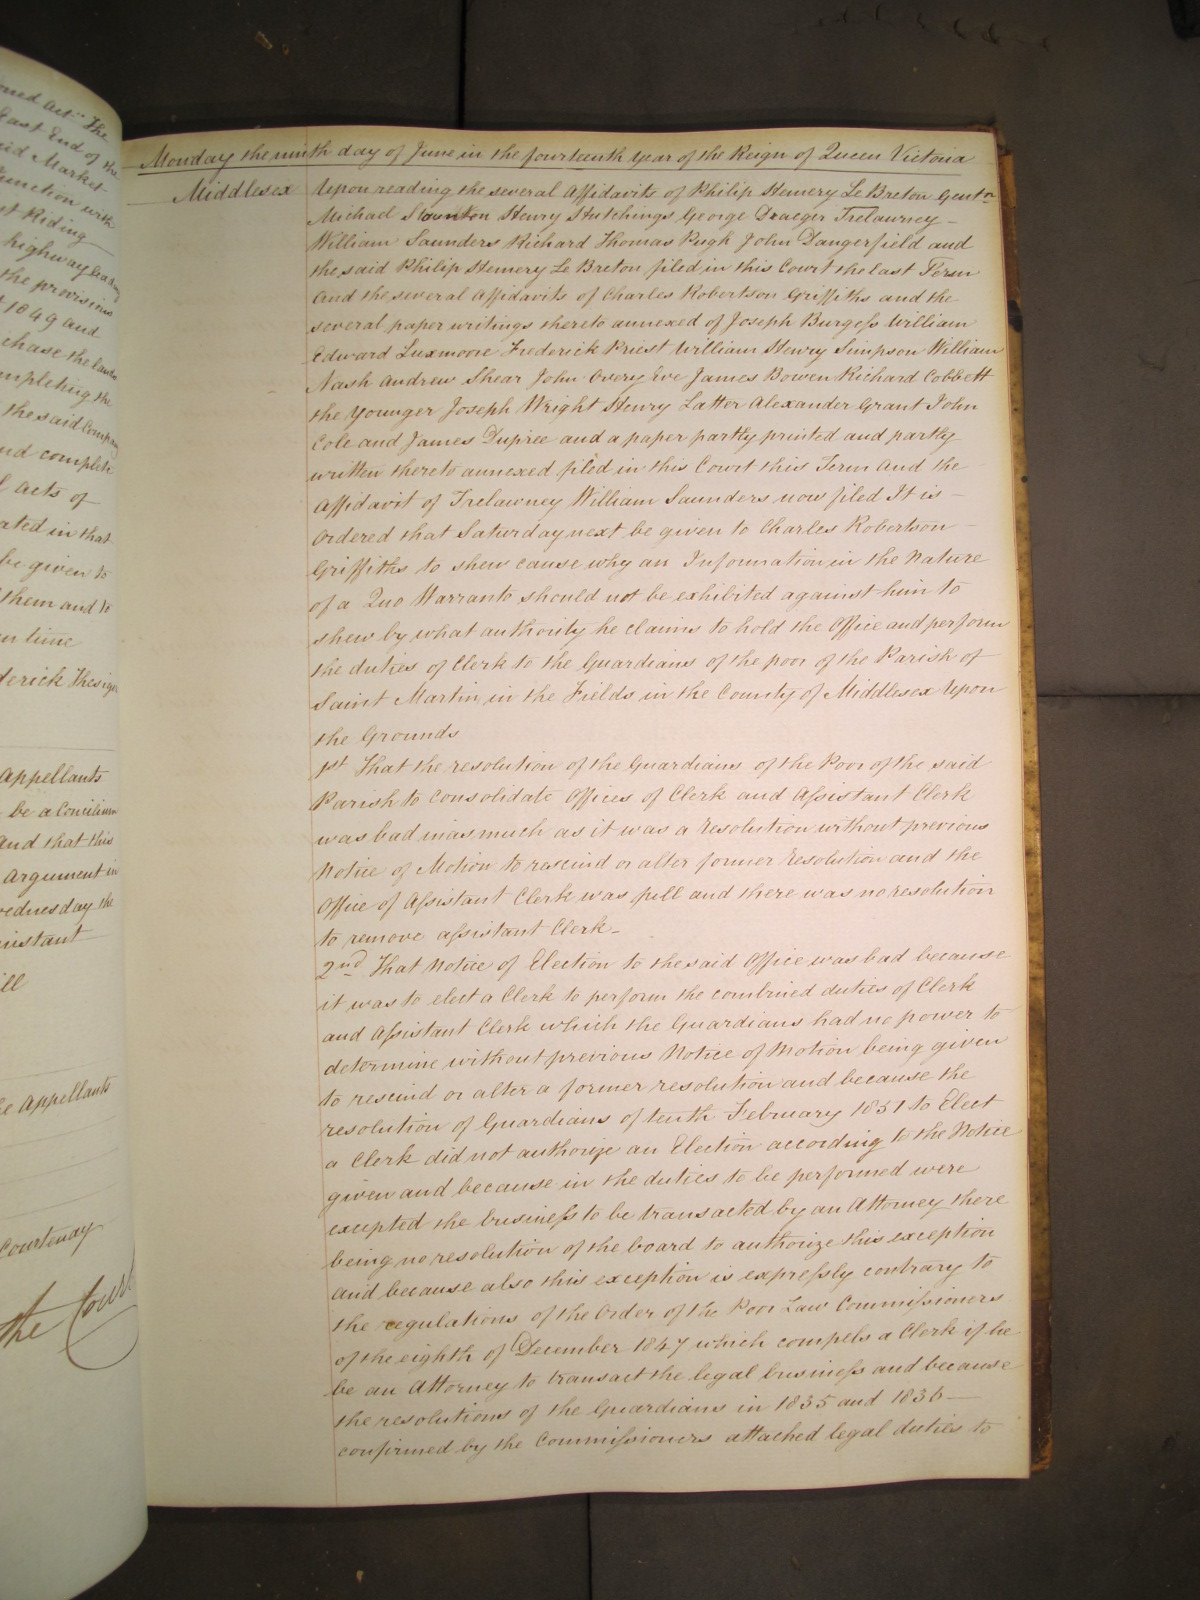 oned Act" The
East End of the
aid Market
Junction with
st Riding
highway leading
the provisions
t 1849 and
chase the lands
mpleting the
the said Company
nd complete
l acts of
ated in that
be given to
them and to
en time
derick Thesiger
Appellants
be a Concilium
and that this
argument in
Wednesday the
instant
ill
he Appellants
Courtenay
the Court
Monday the ninth day of June in the fourteenth year of the Reign of Queen Victoria
Middlesex
Upon reading the several Affidavits of Philip Hemery Le Breton Gentn
Michael Staunton Henry Hutchings George Draeger Trelawney
William Saunders Richard Thomas Pugh John Dangerfield and
the said Philip Hemery Le Breton filed in this Court the last Term
and the several Affidavits of Charles Robertson Griffiths and the
several paper writings thereto annexed of Joseph Burgess William
Edward Luxmoore Frederick Priest William Henry Simpson William
Nash Andrew Shear John Overy Eve James Bowen Richard Cobbett
the Younger Joseph Wright Henry Latter Alexander Grant John
Cole and James Dupree and a paper partly printed and partly
written thereto annexed filed in this Court this Term and the
Affidavit of Trelawney William Saunders now filed It is
Ordered that Saturday next be given to Charles Robertson
Griffiths to shew cause why an Information in the Nature
of a Quo Warranto should not be exhibited against him to
shew by what authority he claims to hold the Office and perform
the duties of Clerk to the Guardians of the poor of the Parish of
Saint Martin in the Fields in the County of Middlesex Upon
the Grounds
1st That the resolution of the Guardians of the Poor of the said
Parish to Consolidate Offices of Clerk and Assistant Clerk
was bad inasmuch as it was a resolution without previous
Notice of Motion to rescind or alter former Resolution and the
Office of Assistant Clerk was full and there was no resolution
to remove assistant Clerk
2nd That Notice of Election to the said Office was bad because
it was to elect a Clerk to perform the combined duties of Clerk
and Assistant Clerk which the Guardians had no power to
determine without previous Notice of Motion being given
to rescind or alter a former resolution and because the
resolution of Guardians of tenth February 1851 to Elect
a Clerk did not authorize an Election according to the Notice
given and because in the duties to be performed were
excepted the business to be transacted by an Attorney there
being no resolution of the board to authorize this exception
and because also this exception is expressly contrary to
the regulations of the Order of the Poor Law Commissioners
of the eighth of December 1847 which compels a Clerk if he
be an Attorney to transact the legal business and because
the resolutions of the Guardians in 1835 and 1836
confirmed by the Commissioners attached legal duties to